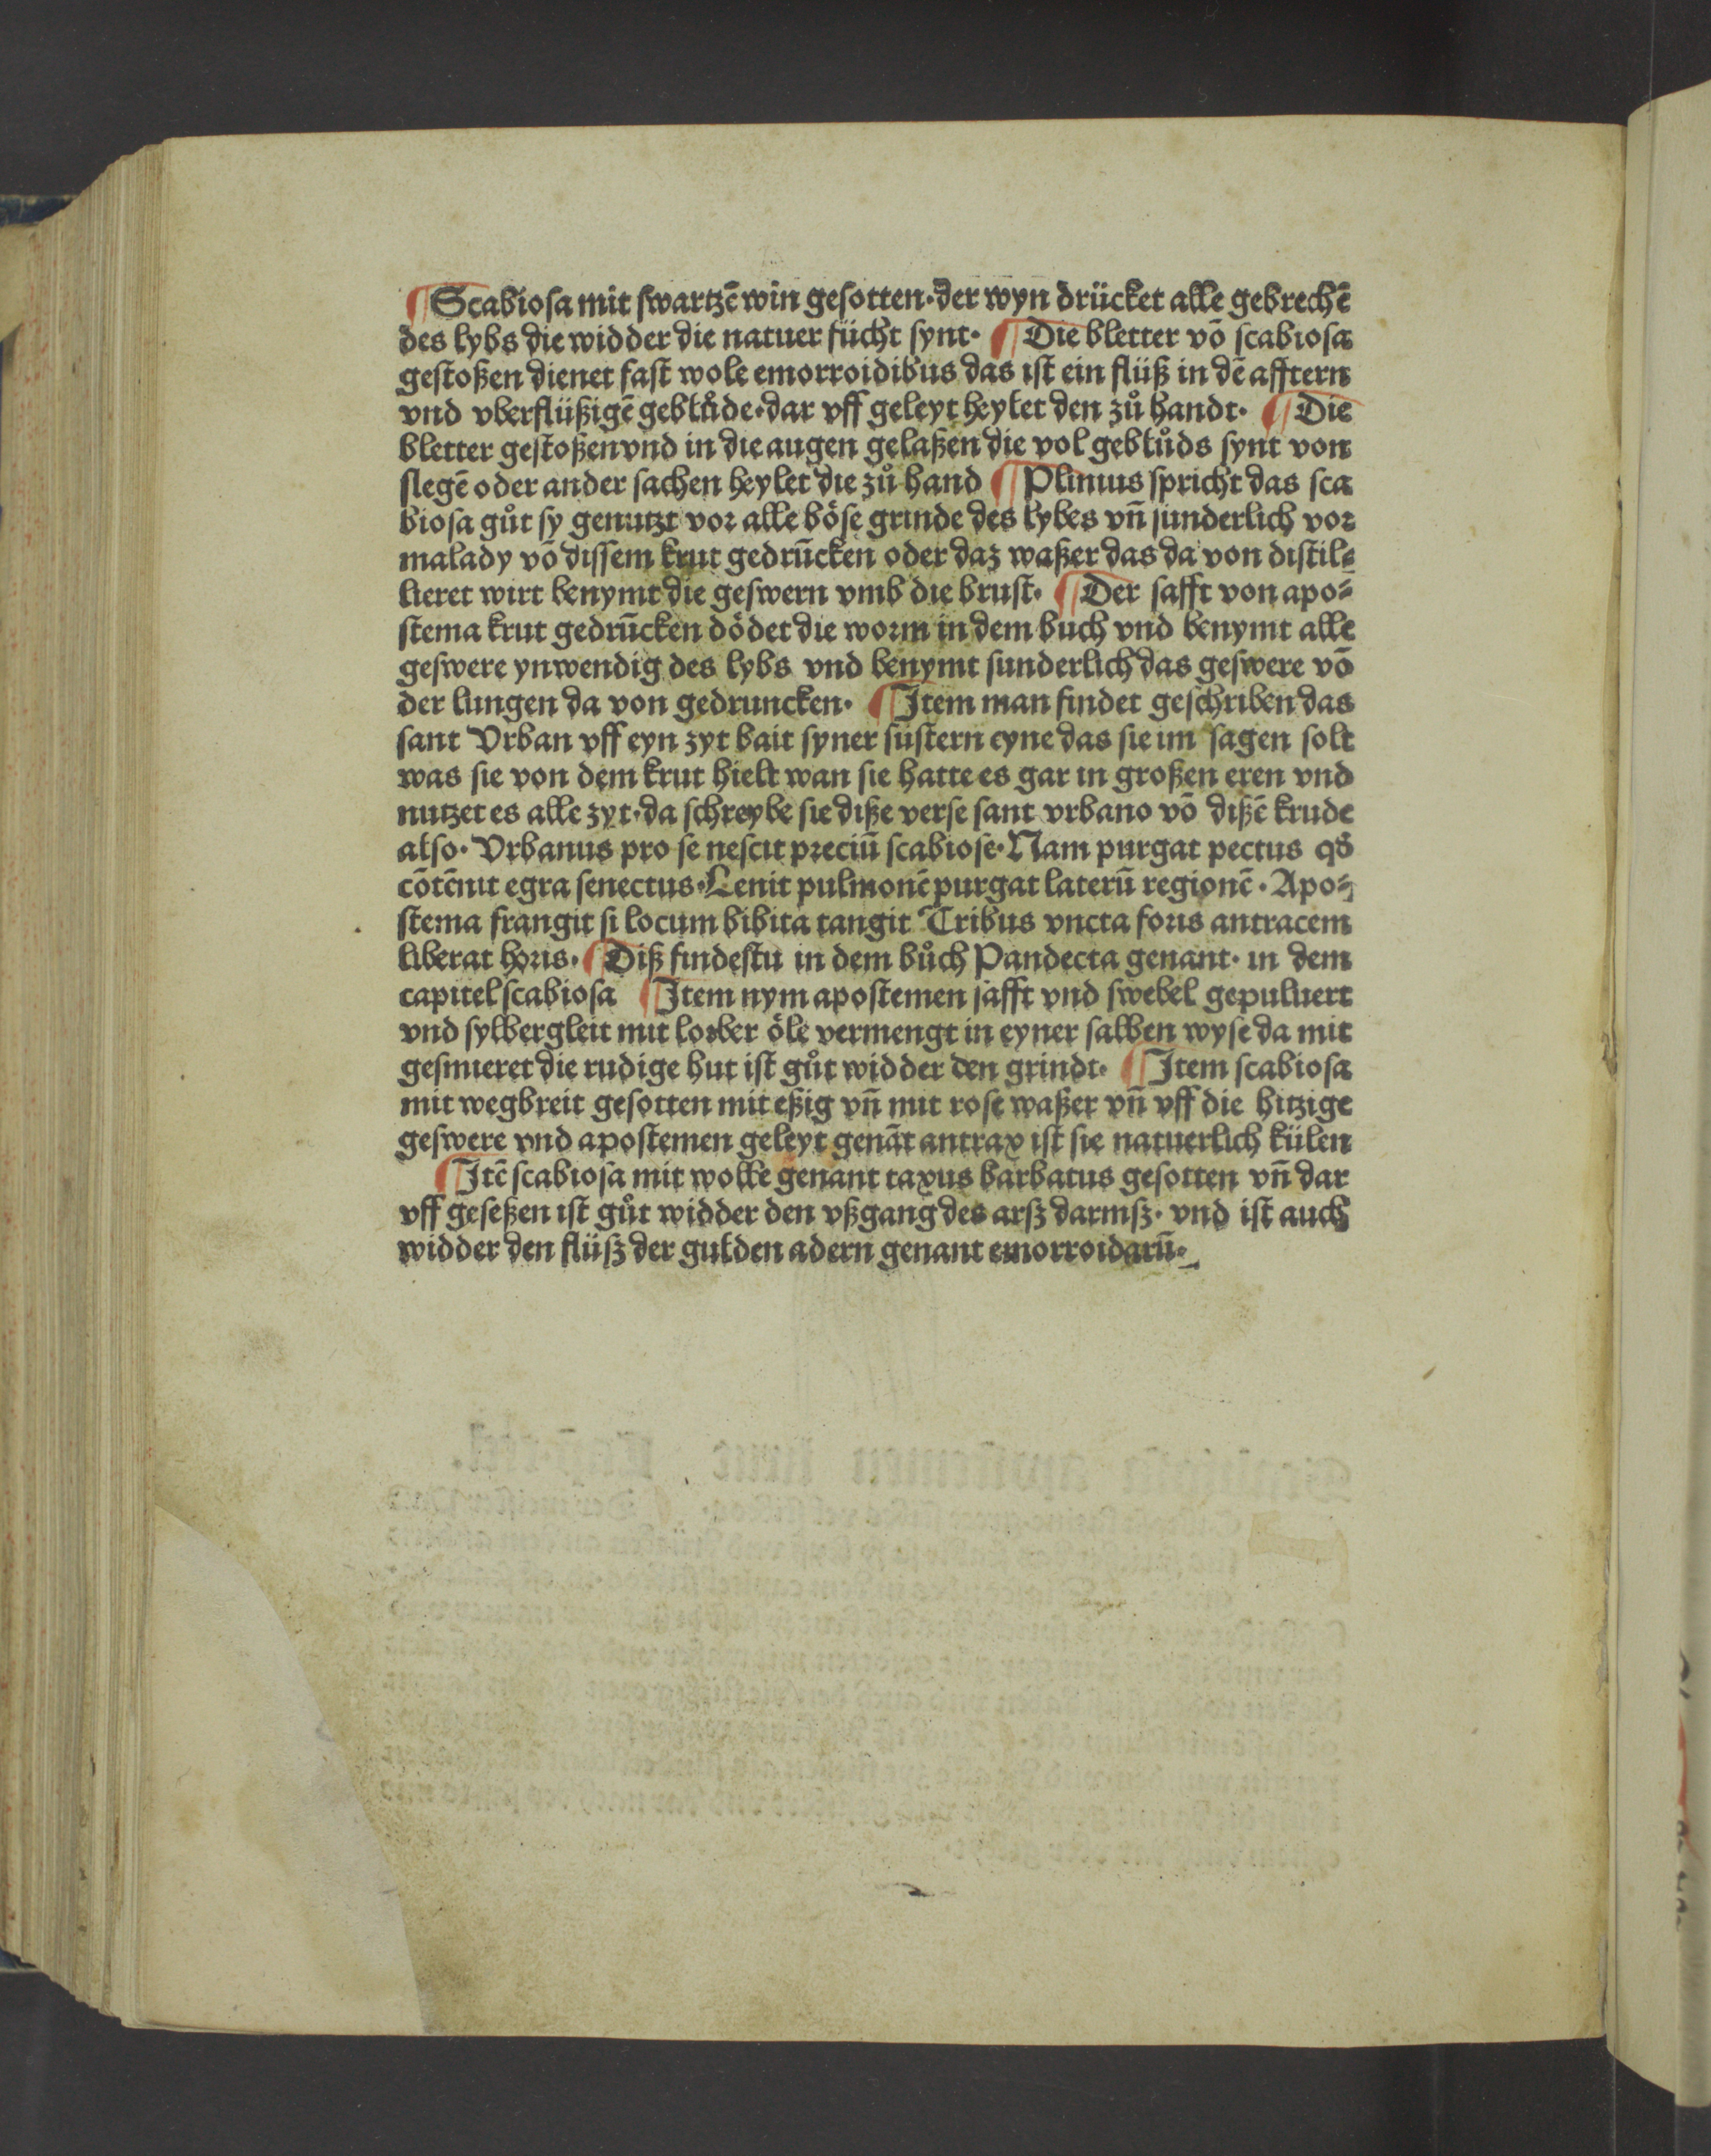 ¶Scabiosa mit swartzē win gesotten·der wyn drücket alle gebrechē
des lybs die widder die natuer fücht synt· ¶Die bletter vō scabiosa
gestoßen dienet fast wole emorroidibus das ist ein flüß in dē afftern
vnd vberflüßigē geblůde·dar vff geleyt heylet den zů handt· ¶Die
bletter gestoßen vnd in die augen gelaßen die vol geblůds synt von
slegē oder ander sachen heylet die zů hand ¶Plinius spricht das sca
biosa gůt sy genutzt vor alle böse grinde des lybes vn̄ sunderlich vor
malady vō dissem krut gedrūcken oder daz waßer das da von distil⸗
lieret wirt benymt die geswern vmb die brust· ¶Der safft von apo⸗
stema krut gedrūcken dödet die worm in dem buch vnd benymt alle
geswere ynwendig des lybs vnd benymt sunderlich das geswere vō
der lungen da von gedruncken· ¶Item man findet geschriben das
sant Vrban vff eyn zyt bait syner sustern eyne das sie im sagen solt
was sie von dem krut hielt wan sie hatte es gar in großen eren vnd
nutzet es alle zyt·da schreybe sie diße verse sant vrbano vō dißē krude
also· Vrbanus pro se nescit preciū scabiose·Nam purgat pectus qđ
cōtēnit egra senectus·Lenit pulmonē purgat laterū regionē·Apo⸗
stema frangit si locum bibita tangit Tribus vncta foris antracem
liberat horis· ¶Diß findestu in dem bůch Pandecta genant· in dem
capitel scabiosa ¶Item nym apostemen safft vnd swebel gepuluert
vnd sylbergleit mit lorber öle vermengt in eyner salben wyse da mit
gesmieret die rudige hut ist gůt widder den grindt· ¶Item scabiosa
mit wegbreit gesotten mit eßig vn̄ mit rose waßer vn̄ vff die hitzige
geswere vnd apostemen geleyt genāt antrax ist sie natuerlich külen
¶Itē scabiosa mit wolle genant taxus barbatus gesotten vn̄ dar
vff geseßen ist gůt widder den vßgang des arsz darmsz· vnd ist auch
widder den flüsz der gulden adern genant emorroidarū·